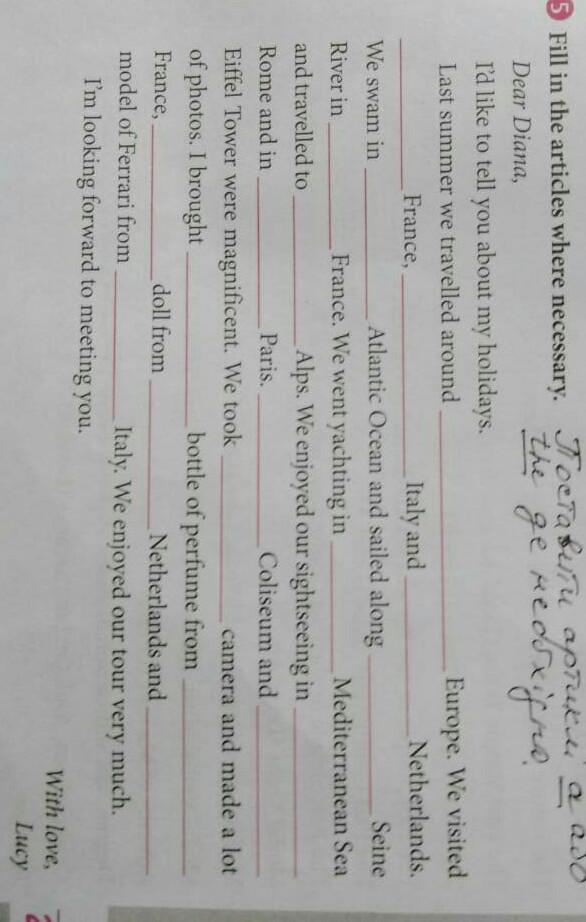 5 Fill in the articles where necessary.
Поставити артиклі a або
the де необхідно.
Dear Diana,
I'd like to tell you about my holidays.
Last summer we travelled around ________ Europe. We visited
________ France, ________ Italy and ________ Netherlands.
We swam in ________ Atlantic Ocean and sailed along ________ Seine
River in ________ France. We went yachting in ________ Mediterranean Sea
and travelled to ________ Alps. We enjoyed our sightseeing in ________
Rome and in ________ Paris. ________ Coliseum and ________
Eiffel Tower were magnificent. We took ________ camera and made a lot
of photos. I brought ________ bottle of perfume from ________
France, ________ doll from ________ Netherlands and ________
model of Ferrari from ________ Italy. We enjoyed our tour very much.
I'm looking forward to meeting you.
With love,
Lucy